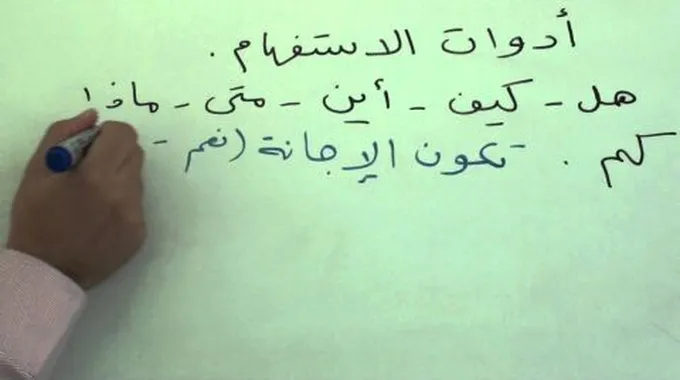 أدوات الاستفهام .
هل - كيف - أين - متى - ماذا
كم . تكون الإجابة (نعم -